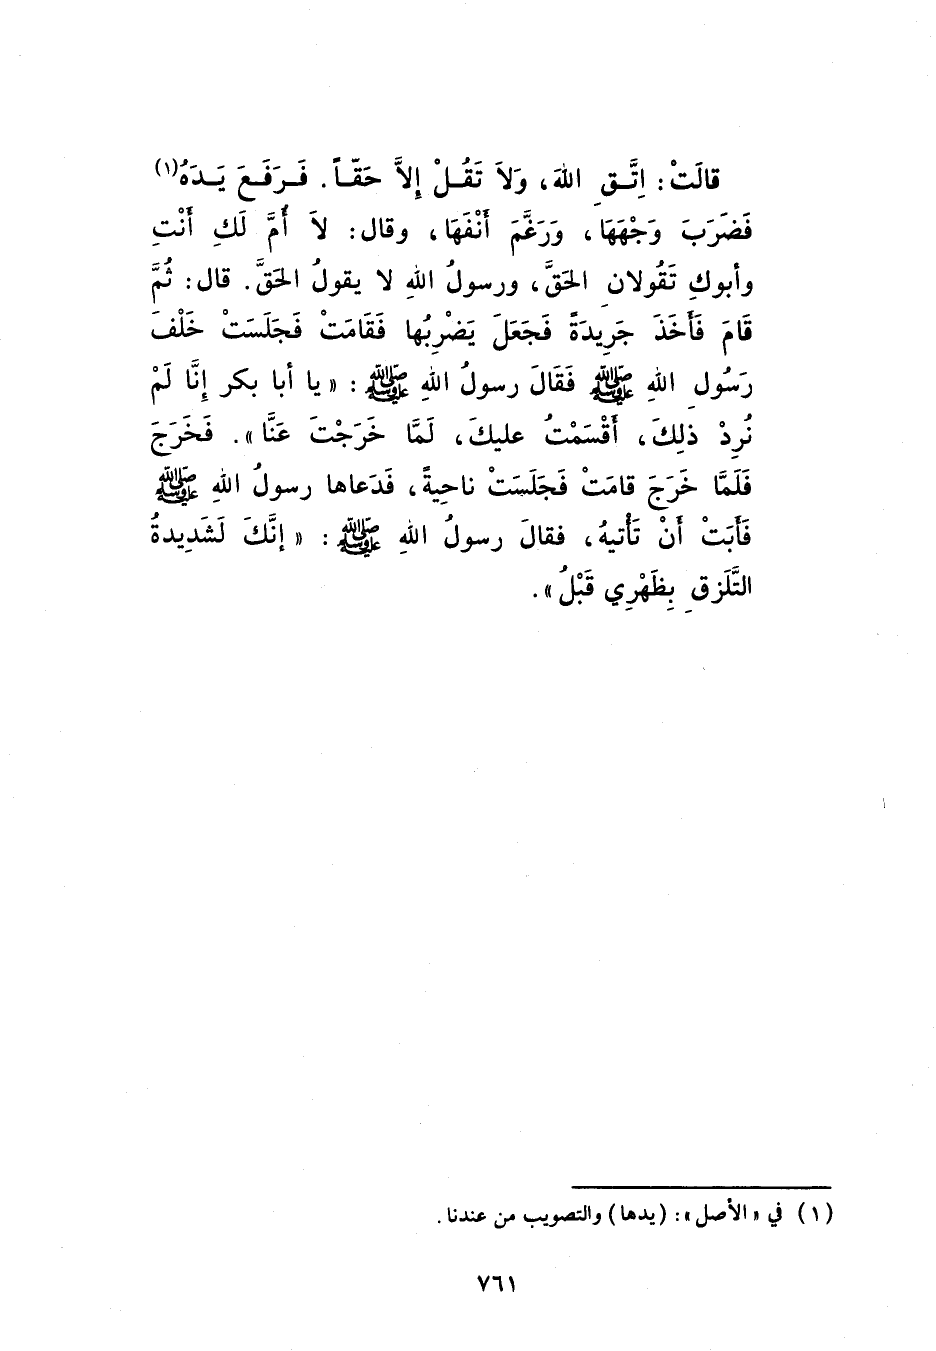 قالَتْ: اِتَّـقِ اللهَ، وَلاَ تَقُـلْ إِلاَّ حَقّـاً. فَـرَفَـعَ يَـدَهُ(١)
فَضَرَبَ وَجْهَهَا، وَرَغَّمَ أَنْفَهَا، وقال: لاَ أُمَّ لَكِ أَنْتِ
وأبوكِ تَقُولانِ الحَقَّ، ورسولُ اللهِ لا يقولُ الحَقَّ. قال: ثُمَّ
قَامَ فَأَخَذَ جَرِيدَةً فَجَعَلَ يَضْرِبُها فَقَامَتْ فَجَلَسَتْ خَلْفَ
رَسُولِ اللهِ ﷺ فَقَالَ رسولُ اللهِ ﷺ: « يا أبا بكر إِنَّا لَمْ
نُرِدْ ذلِكَ، أَقْسَمْتُ عليكَ، لَمَّا خَرَجْتَ عَنَّا». فَخَرَجَ
فَلَمَّا خَرَجَ قامَتْ فَجَلَسَتْ ناحِيةً، فَدَعاها رسولُ اللهِ ﷺ
فَأَبَتْ أَنْ تَأْتيهُ، فقالَ رسولُ اللهِ ﷺ: « إنَّكَ لَشَدِيدةُ
التَّلَزقِ بِظَهْرِي قَبْلُ».
(١) في «الأصل»: (يدها) والتصويب من عندنا.
٧٦١